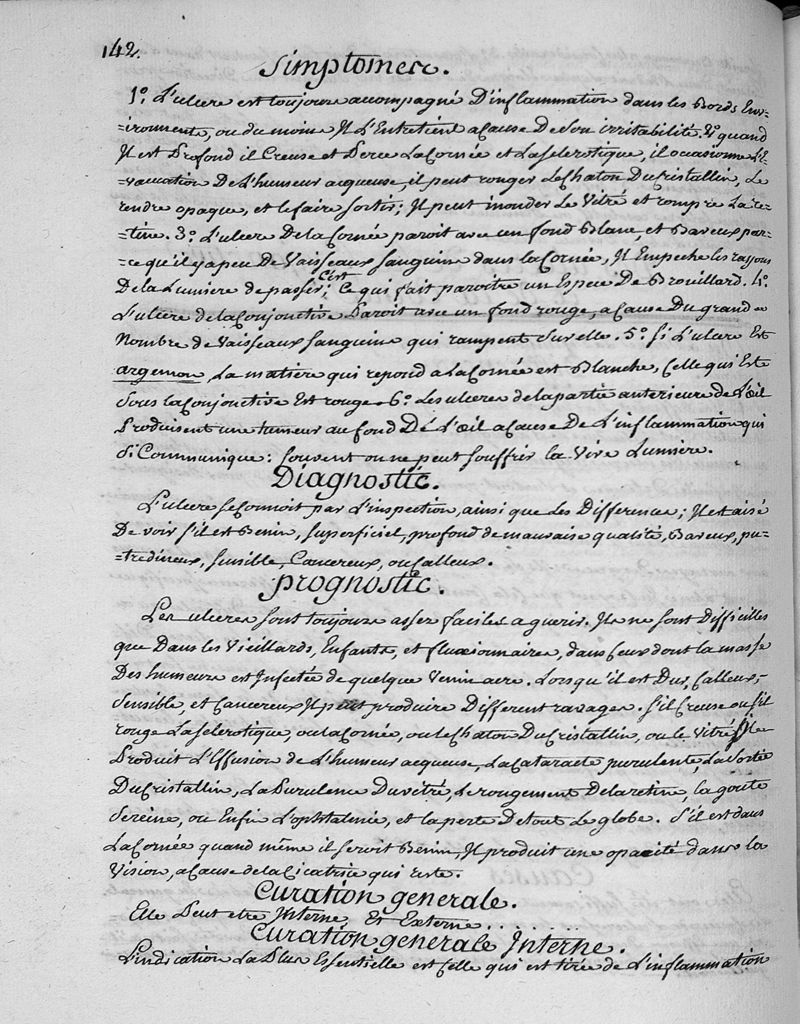 142.
Simptomes.
1.º L'ulcere est toujours accompagné D'inflammation dans les Bords Env-
=ironnents, ou du moins Il L'Entretient a Cause De Son irritabilité. 2.º quand
Il est Profond il Creuse et Perce La Cornée et La Sclerotique, il occasionne L'E-
=vacuation De L'humeur acqueuse, il peut ronger Le Chaton Du Cristallin, Le
rendre opaque, et le faire sortir; Il peut inonder Le Vitré et rompre La re-
=tine. 3.º L'ulcere De la Cornée paroit avec un fond Blanc, et Baveux par-
=ce qu'il y a peu De Vaisseaux Sanguins dans la Cornée, Il Empeche les rayons
De la Lumiere de passer; C'est Ce qui fait paroître un Espece De Brouillard. 4.º
L'ulcere de la Conjonctive Paroit avec un fond rouge, a Cause Du grand
Nombre de Vaisseaux Sanguins qui rampent Sur elle. 5.º Si L'ulcere Est
argemon, La matiere qui repond a La Cornée est Blanche, Celle qui Est
Sous la Conjonctive Est rouge. 6.º Les ulceres de la partie anterieure de L'œil
Produisent une tumeur au fond Dé L'œil a Cause De L'inflammation qui
Si Communique: Souvent on ne peut Souffrir la Vive Lumiere.
Diagnostic.
L'ulcere se Connoit par L'inspection, ainsi que Les Differences; Il est aisé
De voir S'il est Benin, Superficiel, profond de mauvaise qualité, Baveux, pu-
=tredineux, Sensible, Cancereux, ou Calleux.
prognostic.
Les ulceres Sont toujours assez faciles a guerir. Ils ne Sont Difficilles
que Dans les Vieillards, Enfants, et fluxionnaires, dans Ceux dont la masse
Des humeurs est Infectée de quelque Venin acre. Lorsqu'il est Dur, Calleux,
Sensible, et Cancereux Il peut produire Different ravages. S'il Creuse ou S'il
ronge La Sclerotique, ou la Cornée, ou le Chaton Du Cristallin, ou le Vitré, Il
Produit L'Effusion de L'humeur acqueuse, La Cataracte purulente, La Sortie
Du Cristallin, La Purulence Du vitré, Le rongement De la retine, la goute
Sereine, ou Enfin L'ophtalmie, et la perte De tout Le globe. S'il est dans
La Cornée quand même il Seroit Benin, Il produit une opacité dans la
Vision, a Cause de la Cicatrice qui reste.
Curation generale.
Elle Peut etre Interne, Et Externe......
Curation generale Interne.
L'indication La Plus Essentielle est Celle qui est tirée de L'inflammation